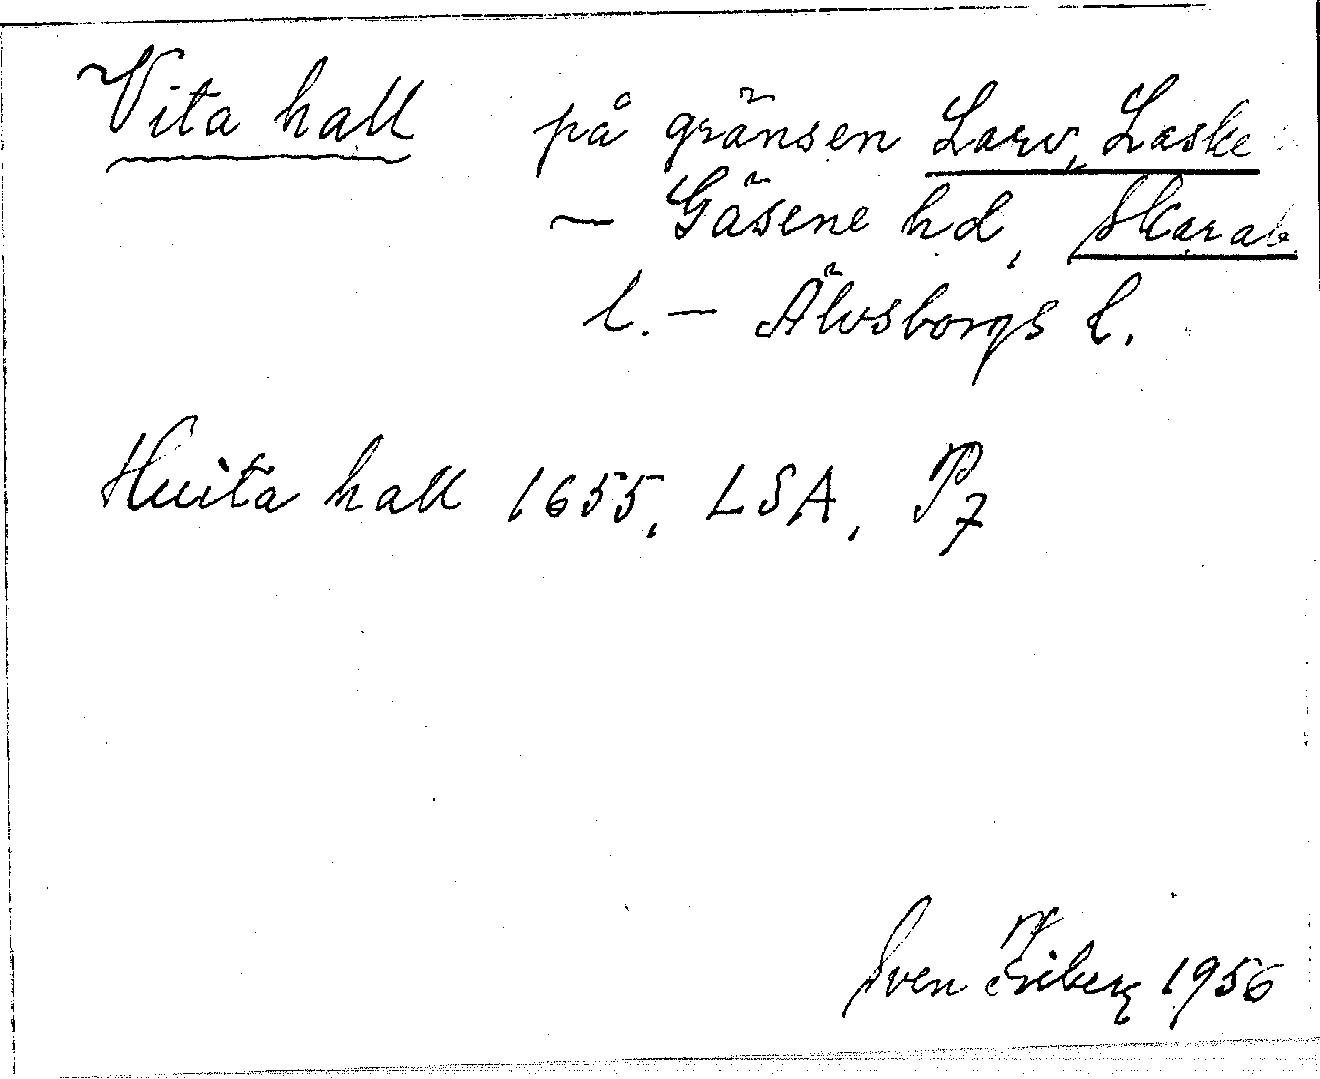 Vita hall på gränsen Larv, Laske
– Gäsene hd, Skarab.
l. – Älvsborgs l.
Huita hall 1655, LSA, P7
Sven Friberg 1956